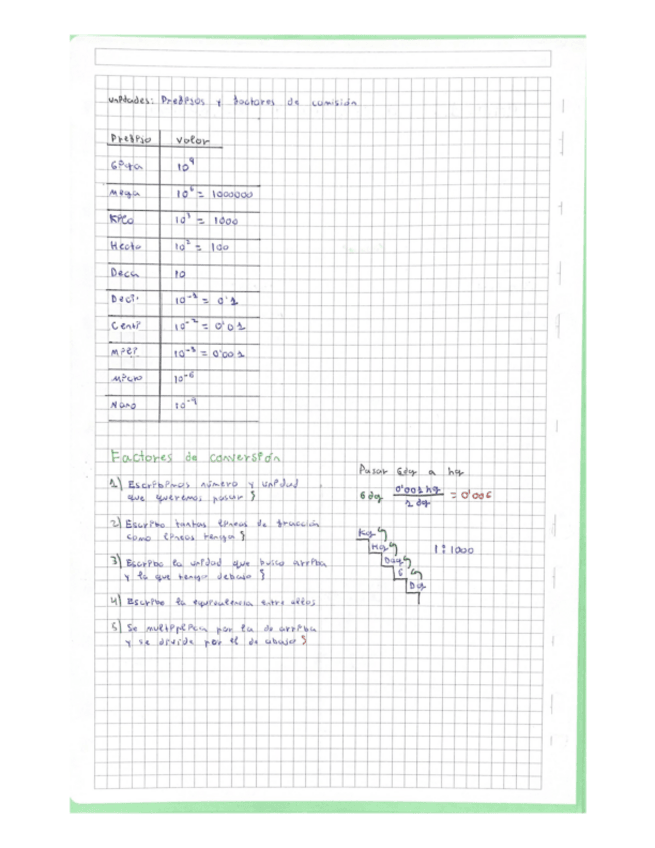 Unidades: Prefijos y factores de
Prefijo Valor
Giga 10⁹
Mega 10⁶ = 1000000
Kilo 10³ = 1000
Hecto 10² = 100
Deca 10
Deci 10⁻¹ = 0'1
Centi 10⁻² = 0'01
Mili 10⁻³ = 0'001
Micro 10⁻⁶
Nano 10⁻⁹
Factores de conversión
1) Escribimos número y unidad
que queremos pasar
2) Escribo tantas líneas de fracción
como líneas tenga
3) Escribo la unidad que busco arriba
y la que tengo debajo
4) Escribo la equivalencia entre ellos
5) Se multiplica por la de arriba
y se divide por el de abajo
Pasar 6dg a hg
6dg 0'001hg / 1dg = 0'006
Kg
Hg
Dag
G
Dg
1:1000